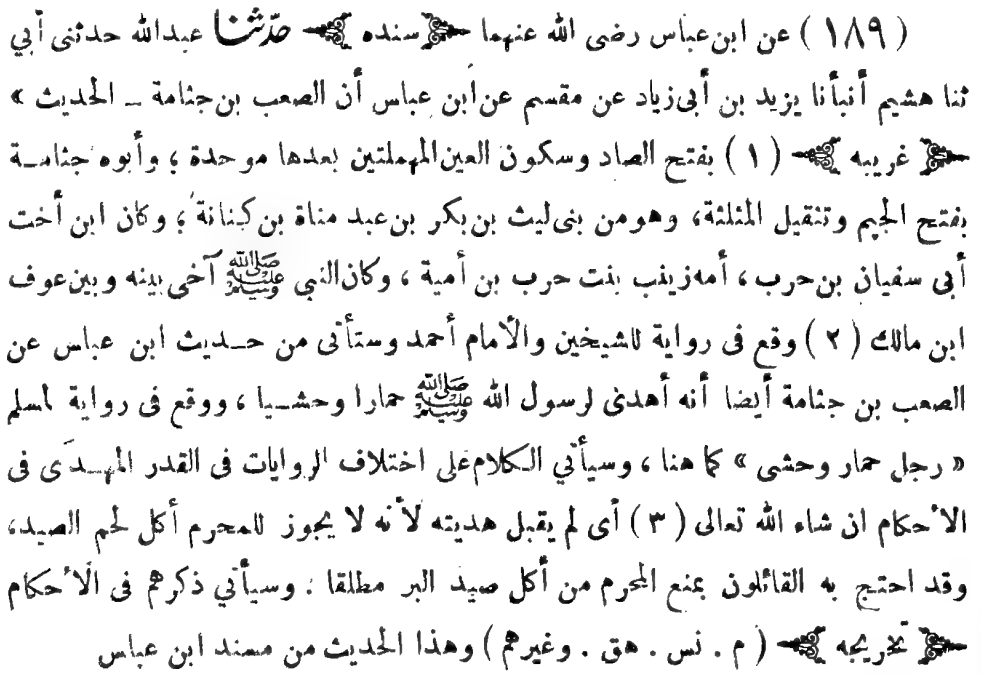 ( ١٨٩ ) عن ابن عباس رضى الله عنهما سنده حدّثنا عبدالله حدثنى أبي
ثنا هشيم أنبأنا يزيد بن أبى زياد عن مقسم عن ابن عباس أن الصعب بن جثامة ــ الحديث »
غريبه ( ١ ) بفتح الصاد وسكون العين المهملتين بعدها موحدة ؛ وأبوه جثامـة
بفتح الجيم وتثقيل المثلثة، وهو من بنى ليث بن بكر بن عبد مناة بن كنانة ؛ وكان ابن أخت
أبى سفيان بن حرب ، أمه زينب بنت حرب بن أمية ، وكان النبي ﷺ آخى بينه وبين عوف
ابن مالك ( ٢ ) وقع فى رواية للشيخين والأمام أحمد وستأتى من حـديث ابن عباس عن
الصعب بن جثامة أيضا أنه أهدى لرسول الله ﷺ حمارا وحشـيا ، ووقع فى رواية لمسلم
« رجل حمار وحشى » كما هنا ، وسيأتي الـكلام على اختلاف الروايات فى القدر المهـدَى فى
الاحكام ان شاء الله تعالى ( ٣ ) أى لم يقبل هديته لأنه لا يجوز للمحرم أكل لحم الصيد،
وقد احتج به القائلون بمنع المحرم من أكل صيد البر مطلقا : وسيأتي ذكرهم فى الأحكام
تخريجه ( م . نس . هق . وغيرهم ) وهذا الحديث من مسند ابن عباس